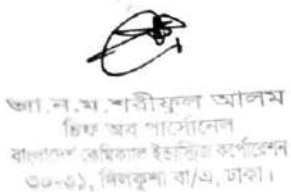 আ.ন.ম.শরীফুল আলম
চিফ অব পার্সোনেল
বাংলাদেশ কেমিক্যাল ইন্ডাস্ট্রিজ কর্পোরেশন
৩০-৩১, দিলকুশা বা/এ, ঢাকা।